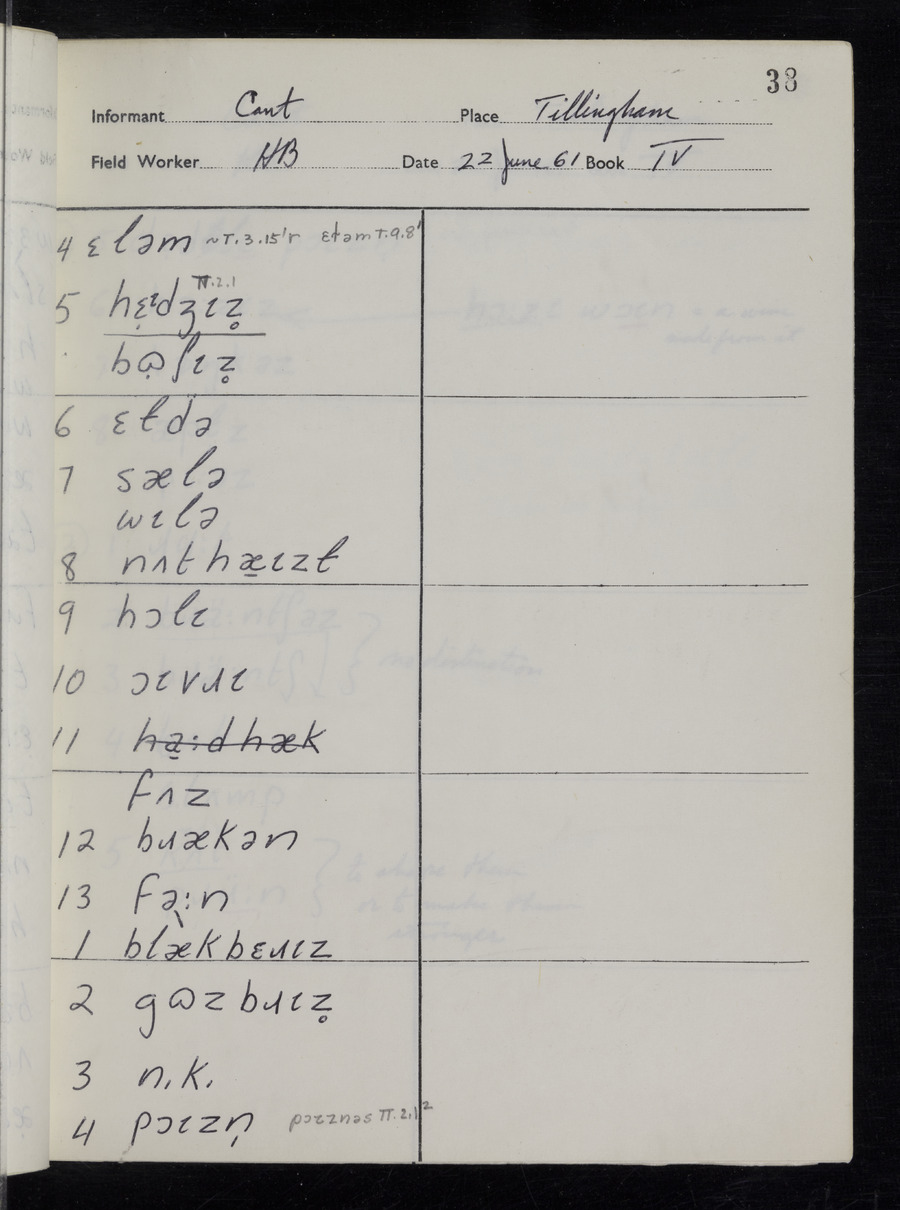 38
Informant Cant Place Tillingham
Field Worker HB Date 22 June 61 Book IV
4 ɛləm ~T.3.15'r ɛɫəm T.9.8'
π.2.1
5 hɛ̣ɪdʒɪz̥
bɷ̣ʃɪz̥
6 ɛɫdə
7 sælə
wɪlə
8 nʌt hæ̱ɪzɫ
9 hɔlɪ
10 ɔɪvɹɪ
11 ha̱:d hæk
fʌz
12 bɹækən
13 fə:n
1 blækbɛɹɪz
2 gɷzbɹɪz̥
3 n.k.
4 pɔɪzn̩ pɔɪznəs π.2.12